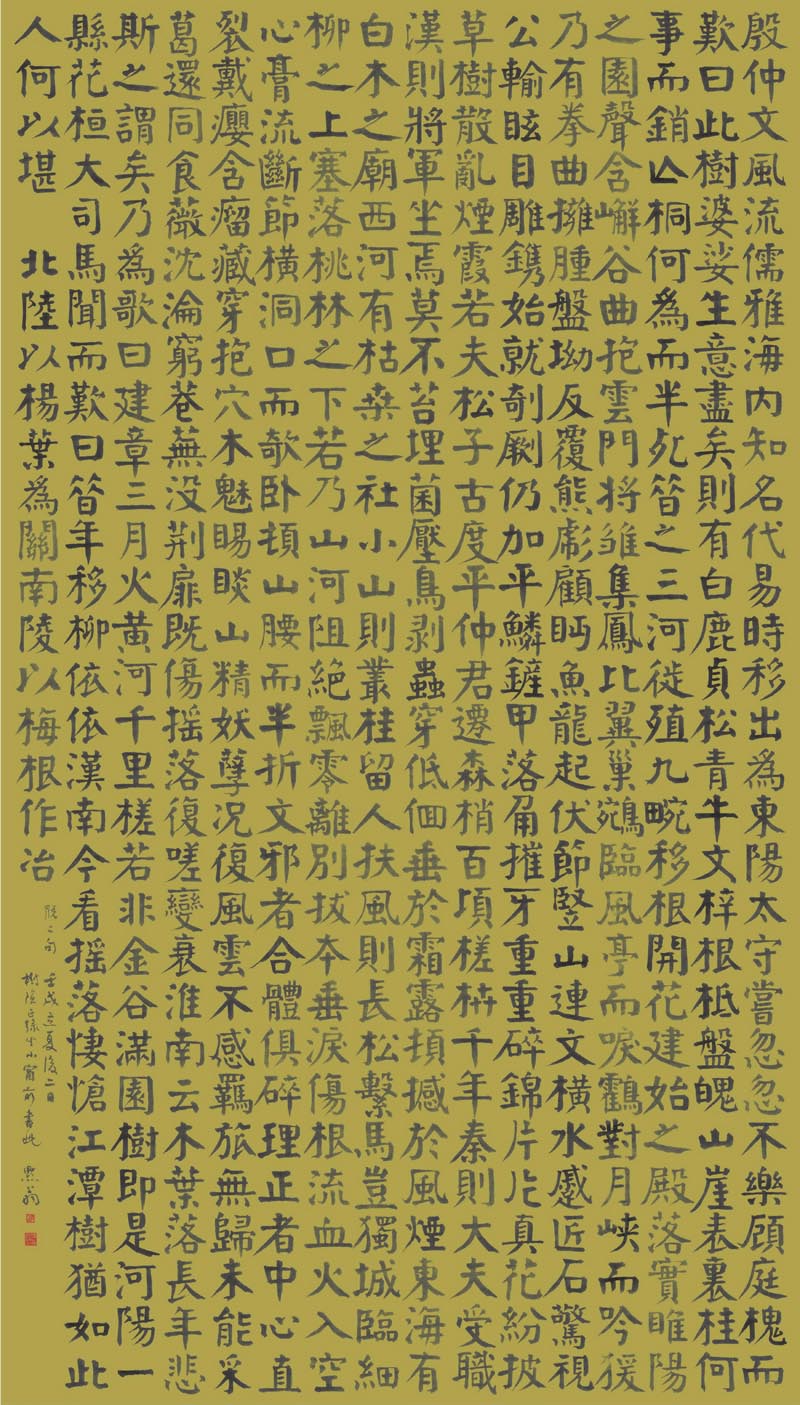 殷仲文風流儒雅海內知名代易時移出為東陽太守嘗忽忽不樂顧庭槐而
歎曰此樹婆娑生意盡矣則有白鹿貞松青牛文梓根柢盤魄山崖表裏桂何
事而銷亾桐何為而半死昔之三河徙殖九畹移根開花建始之殿落實睢陽
之園聲含嶰谷曲抱雲門將雛集鳳比翼巢鵷臨風亭而唳鶴對月峽而吟猨
乃有拳曲擁腫盤坳反覆熊彪顧眄魚龍起伏節豎山連文橫水蹙匠石驚視
公輸眩目雕鐫始就剞劂仍加平鱗鏟甲落角摧牙重重碎錦片片真花紛披
草樹散亂煙霞若夫松子古度平仲君遷森梢百頃槎枿千年秦則大夫受職
漢則將軍坐焉莫不苔埋菌壓鳥剝蟲穿低佪垂於霜露頓撼於風煙東海有
白木之廟西河有枯桑之社小山則叢桂留人扶風則長松繫馬豈獨城臨細
柳之上塞落桃林之下若乃山河阻絕飄零離別拔本垂淚傷根流血火入空
心膏流斷節橫洞口而欹臥頓山腰而半折文邪者合體俱碎理正者中心直
裂戴癭含瘤藏穿抱穴木魅睗睒山精妖孽況復風雲不感羈旅無歸未能采
葛還同食薇沈淪窮巷蕪沒荊扉既傷搖落復嗟變衰淮南云木葉落長年悲
斯之謂矣乃為歌曰建章三月火黃河千里槎若非金谷滿園樹即是河陽一
縣花桓大司馬聞而歎曰昔年移柳依依漢南今看搖落悽愴江潭樹猶如此
人何以堪 北陸以楊葉為關南陵以梅根作冶
脫二句
壬戌立夏後二日
書此